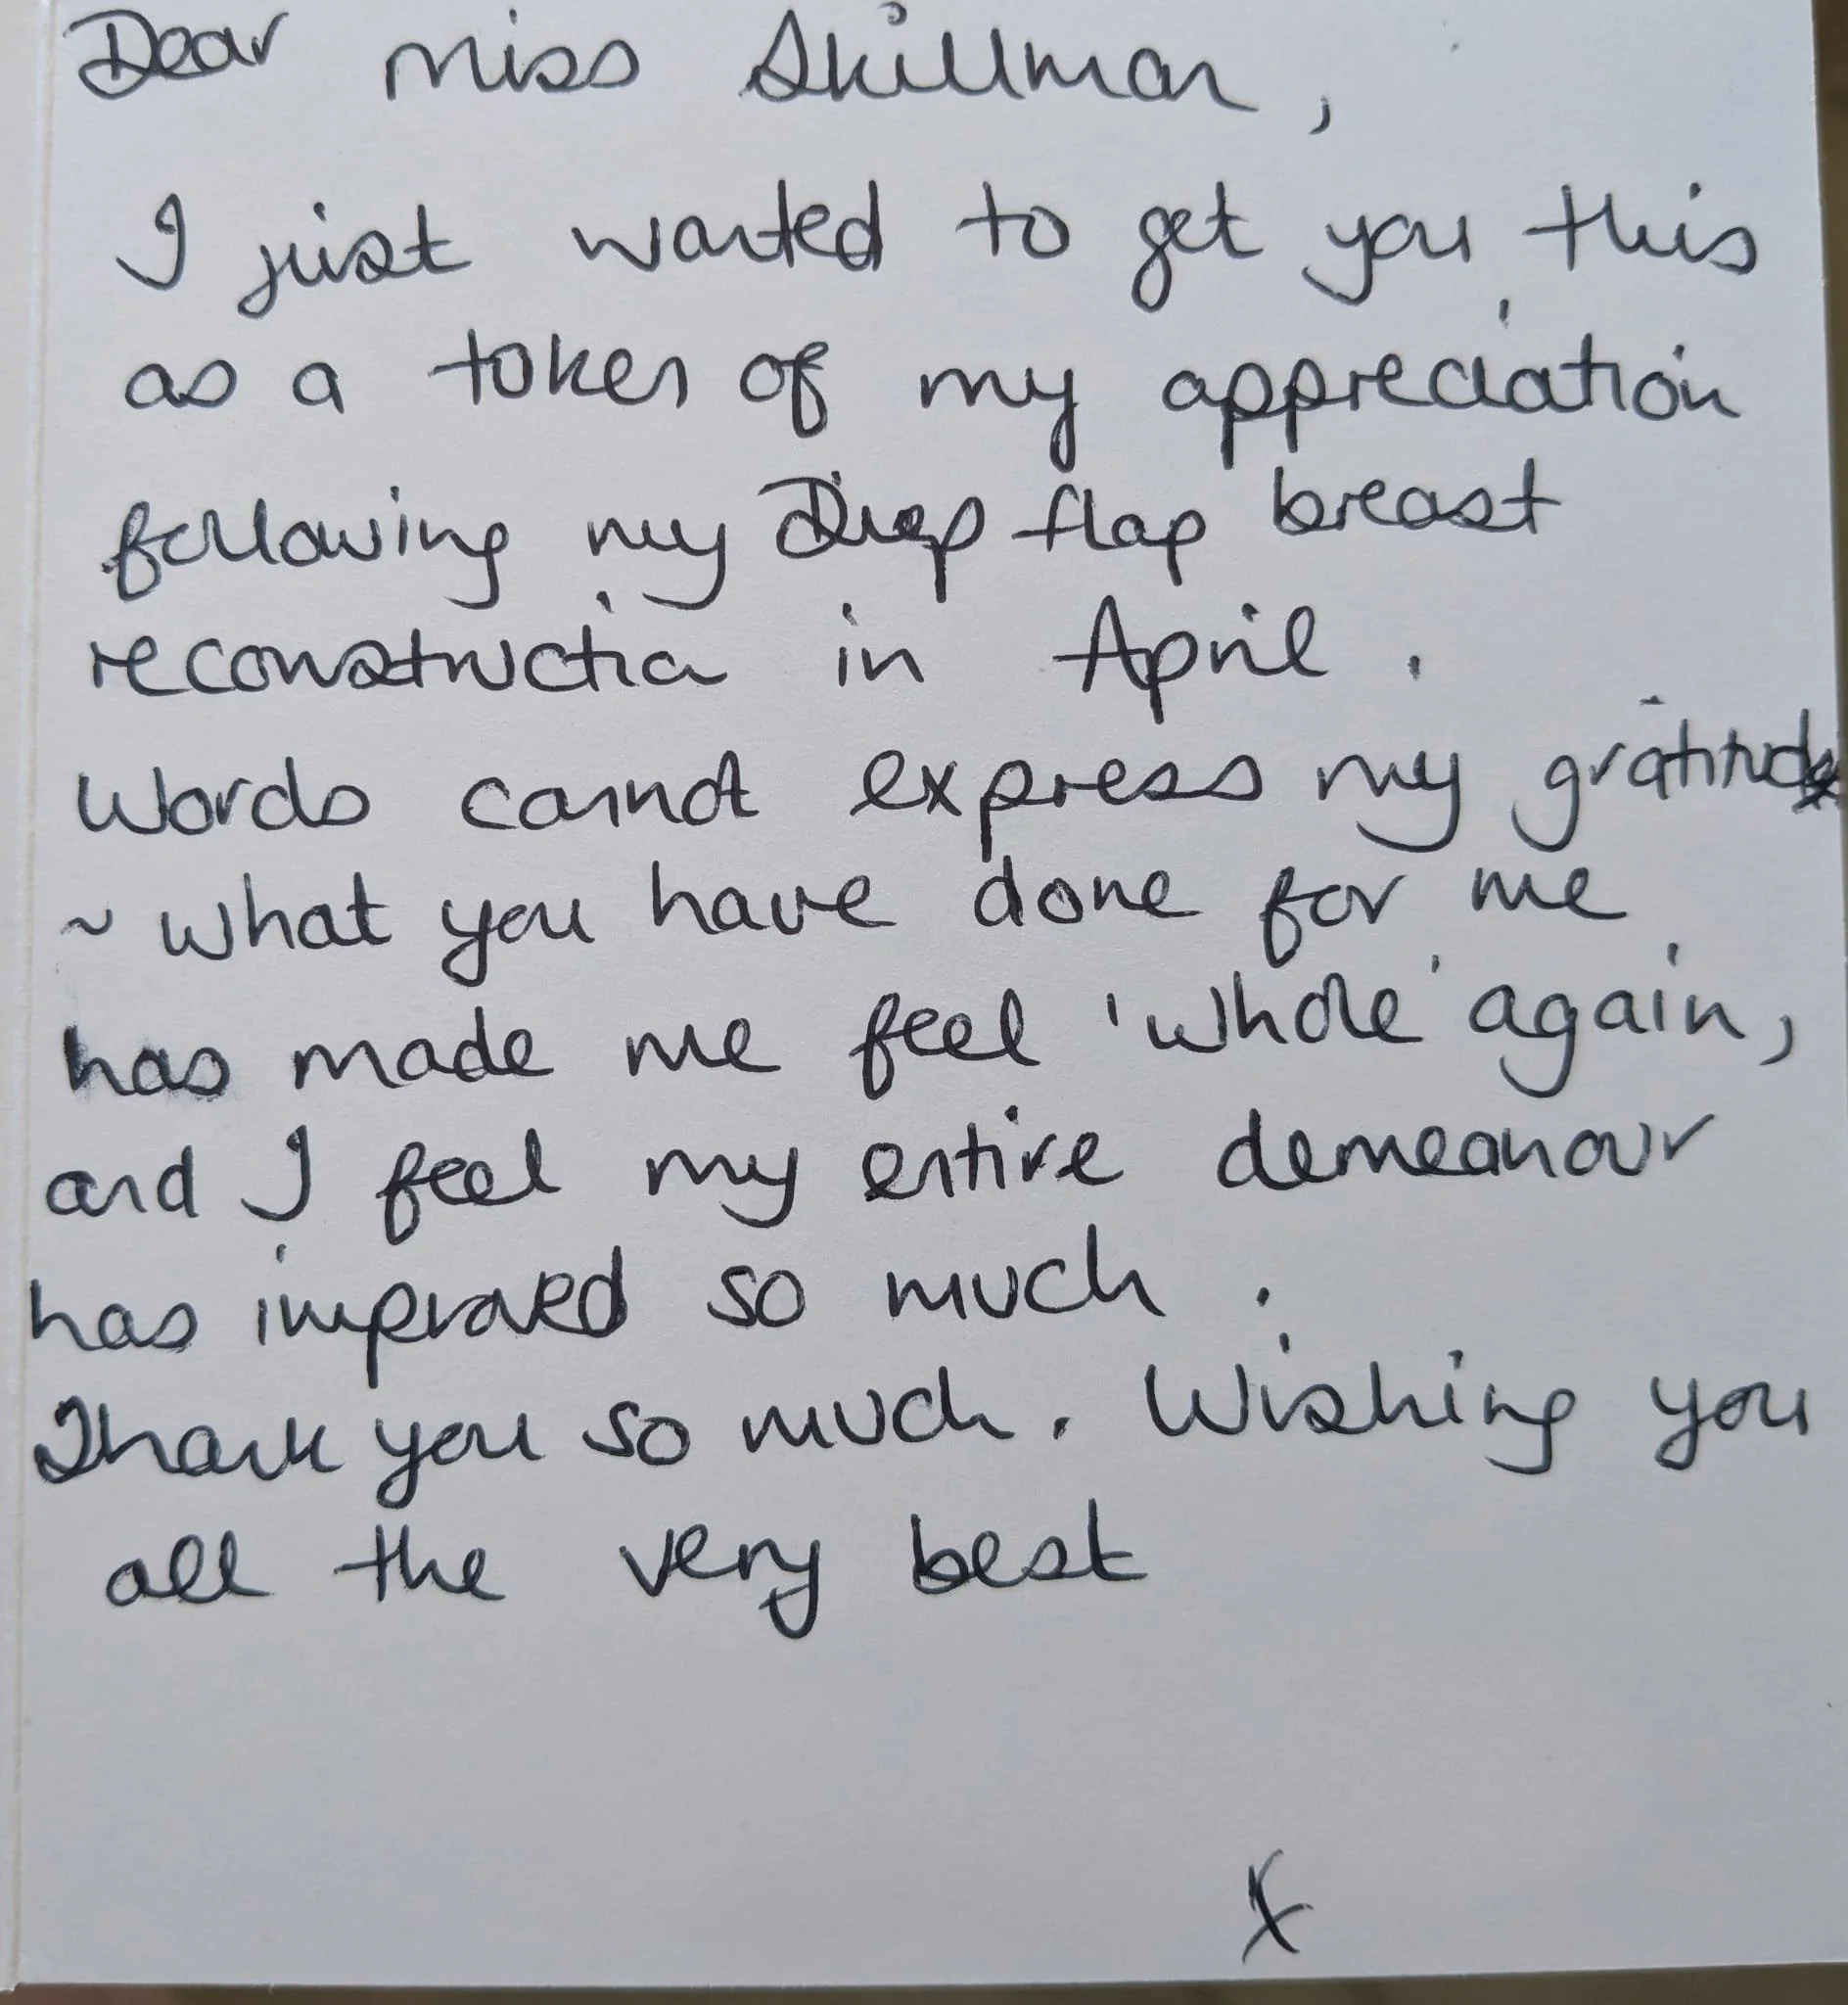 Dear Miss Skillman,
I just wanted to get you this
as a token of my appreciation
following my Diep flap breast
reconstruction in April.
Words cannot express my gratitude
~ what you have done for me
has made me feel 'whole' again,
and I feel my entire demeanour
has improved so much.
Thank you so much. Wishing you
all the very best
X